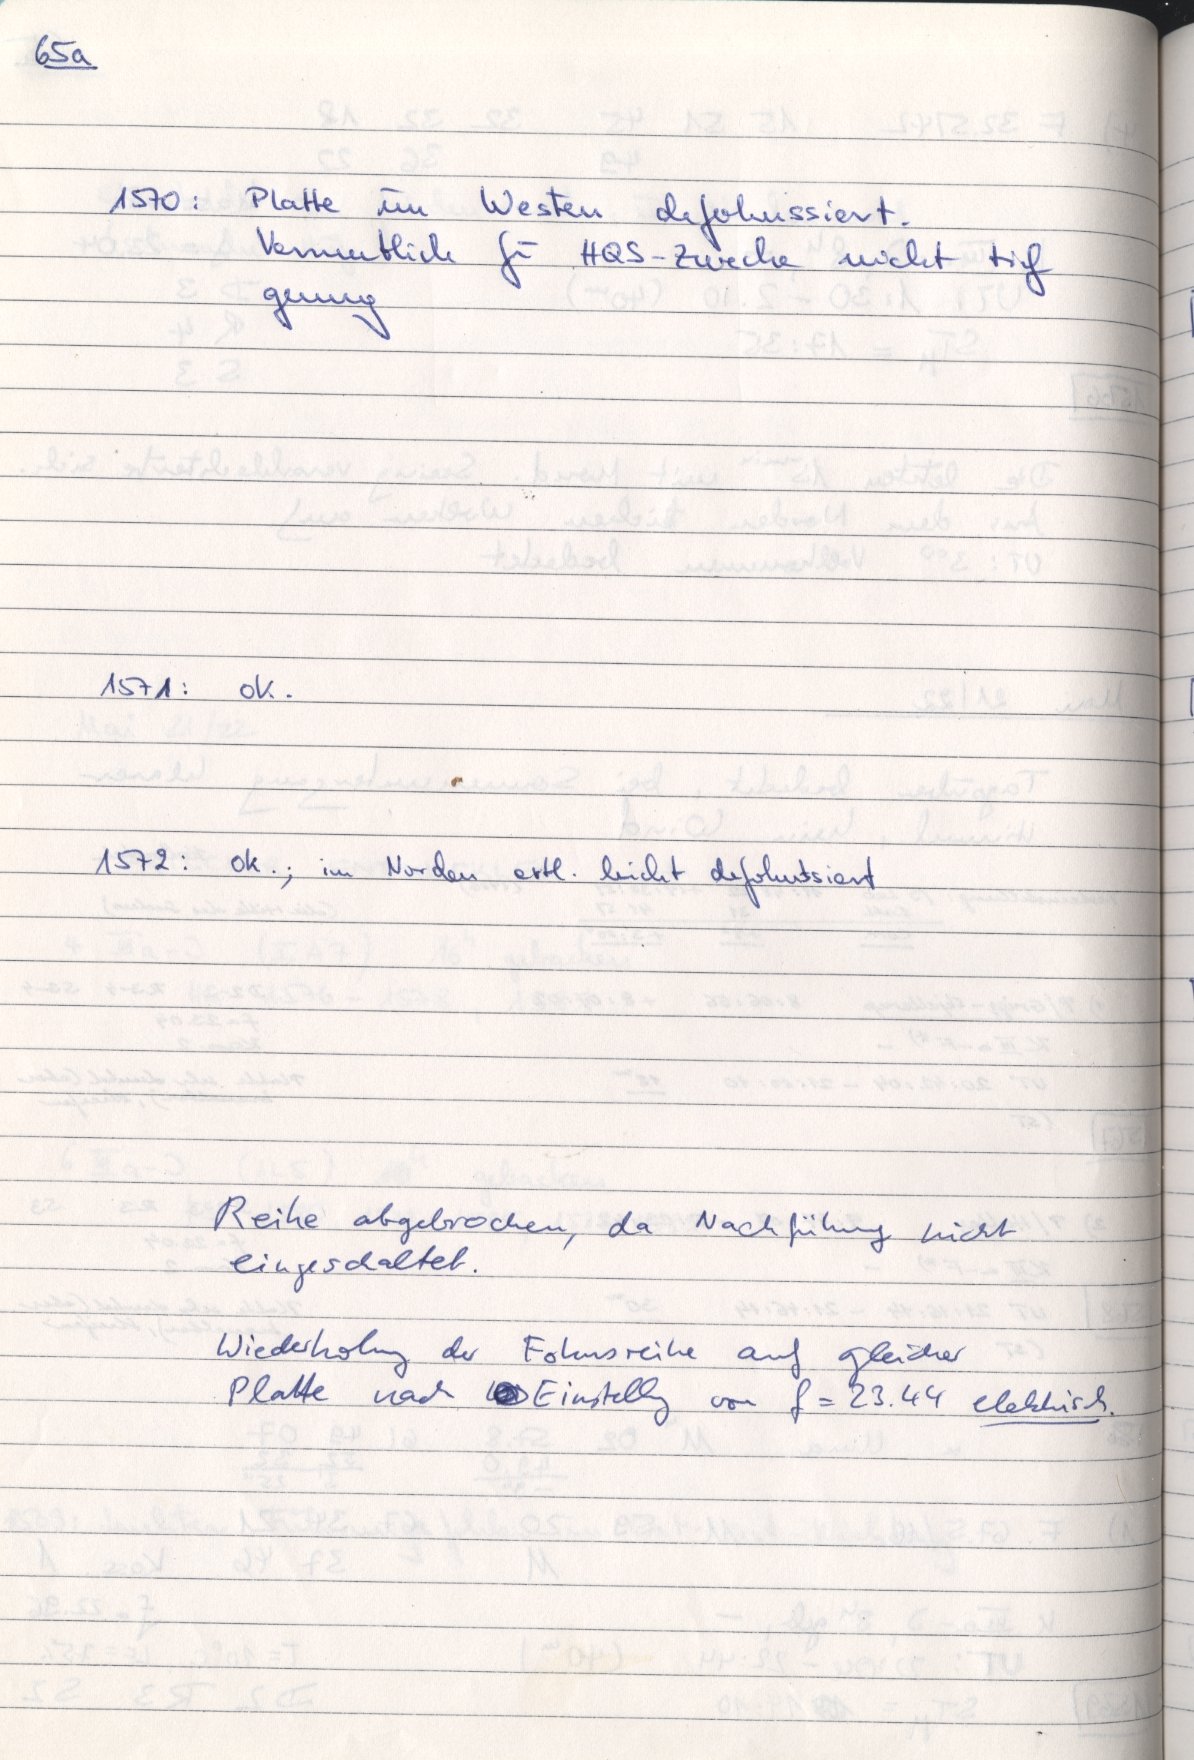 65a
1570: Platte im Westen defokussiert.
Vermutlich für HQS-Zwecke nicht tief
genug
1571: ok.
1572: ok.; im Norden extl. leicht defokussiert
Reihe abgebrochen, da Nachführung nicht
eingeschaltet.
Wiederholung der Fokusreihe auf gleicher
Platte nach Einstellg von f = 23.44 elektrisch.